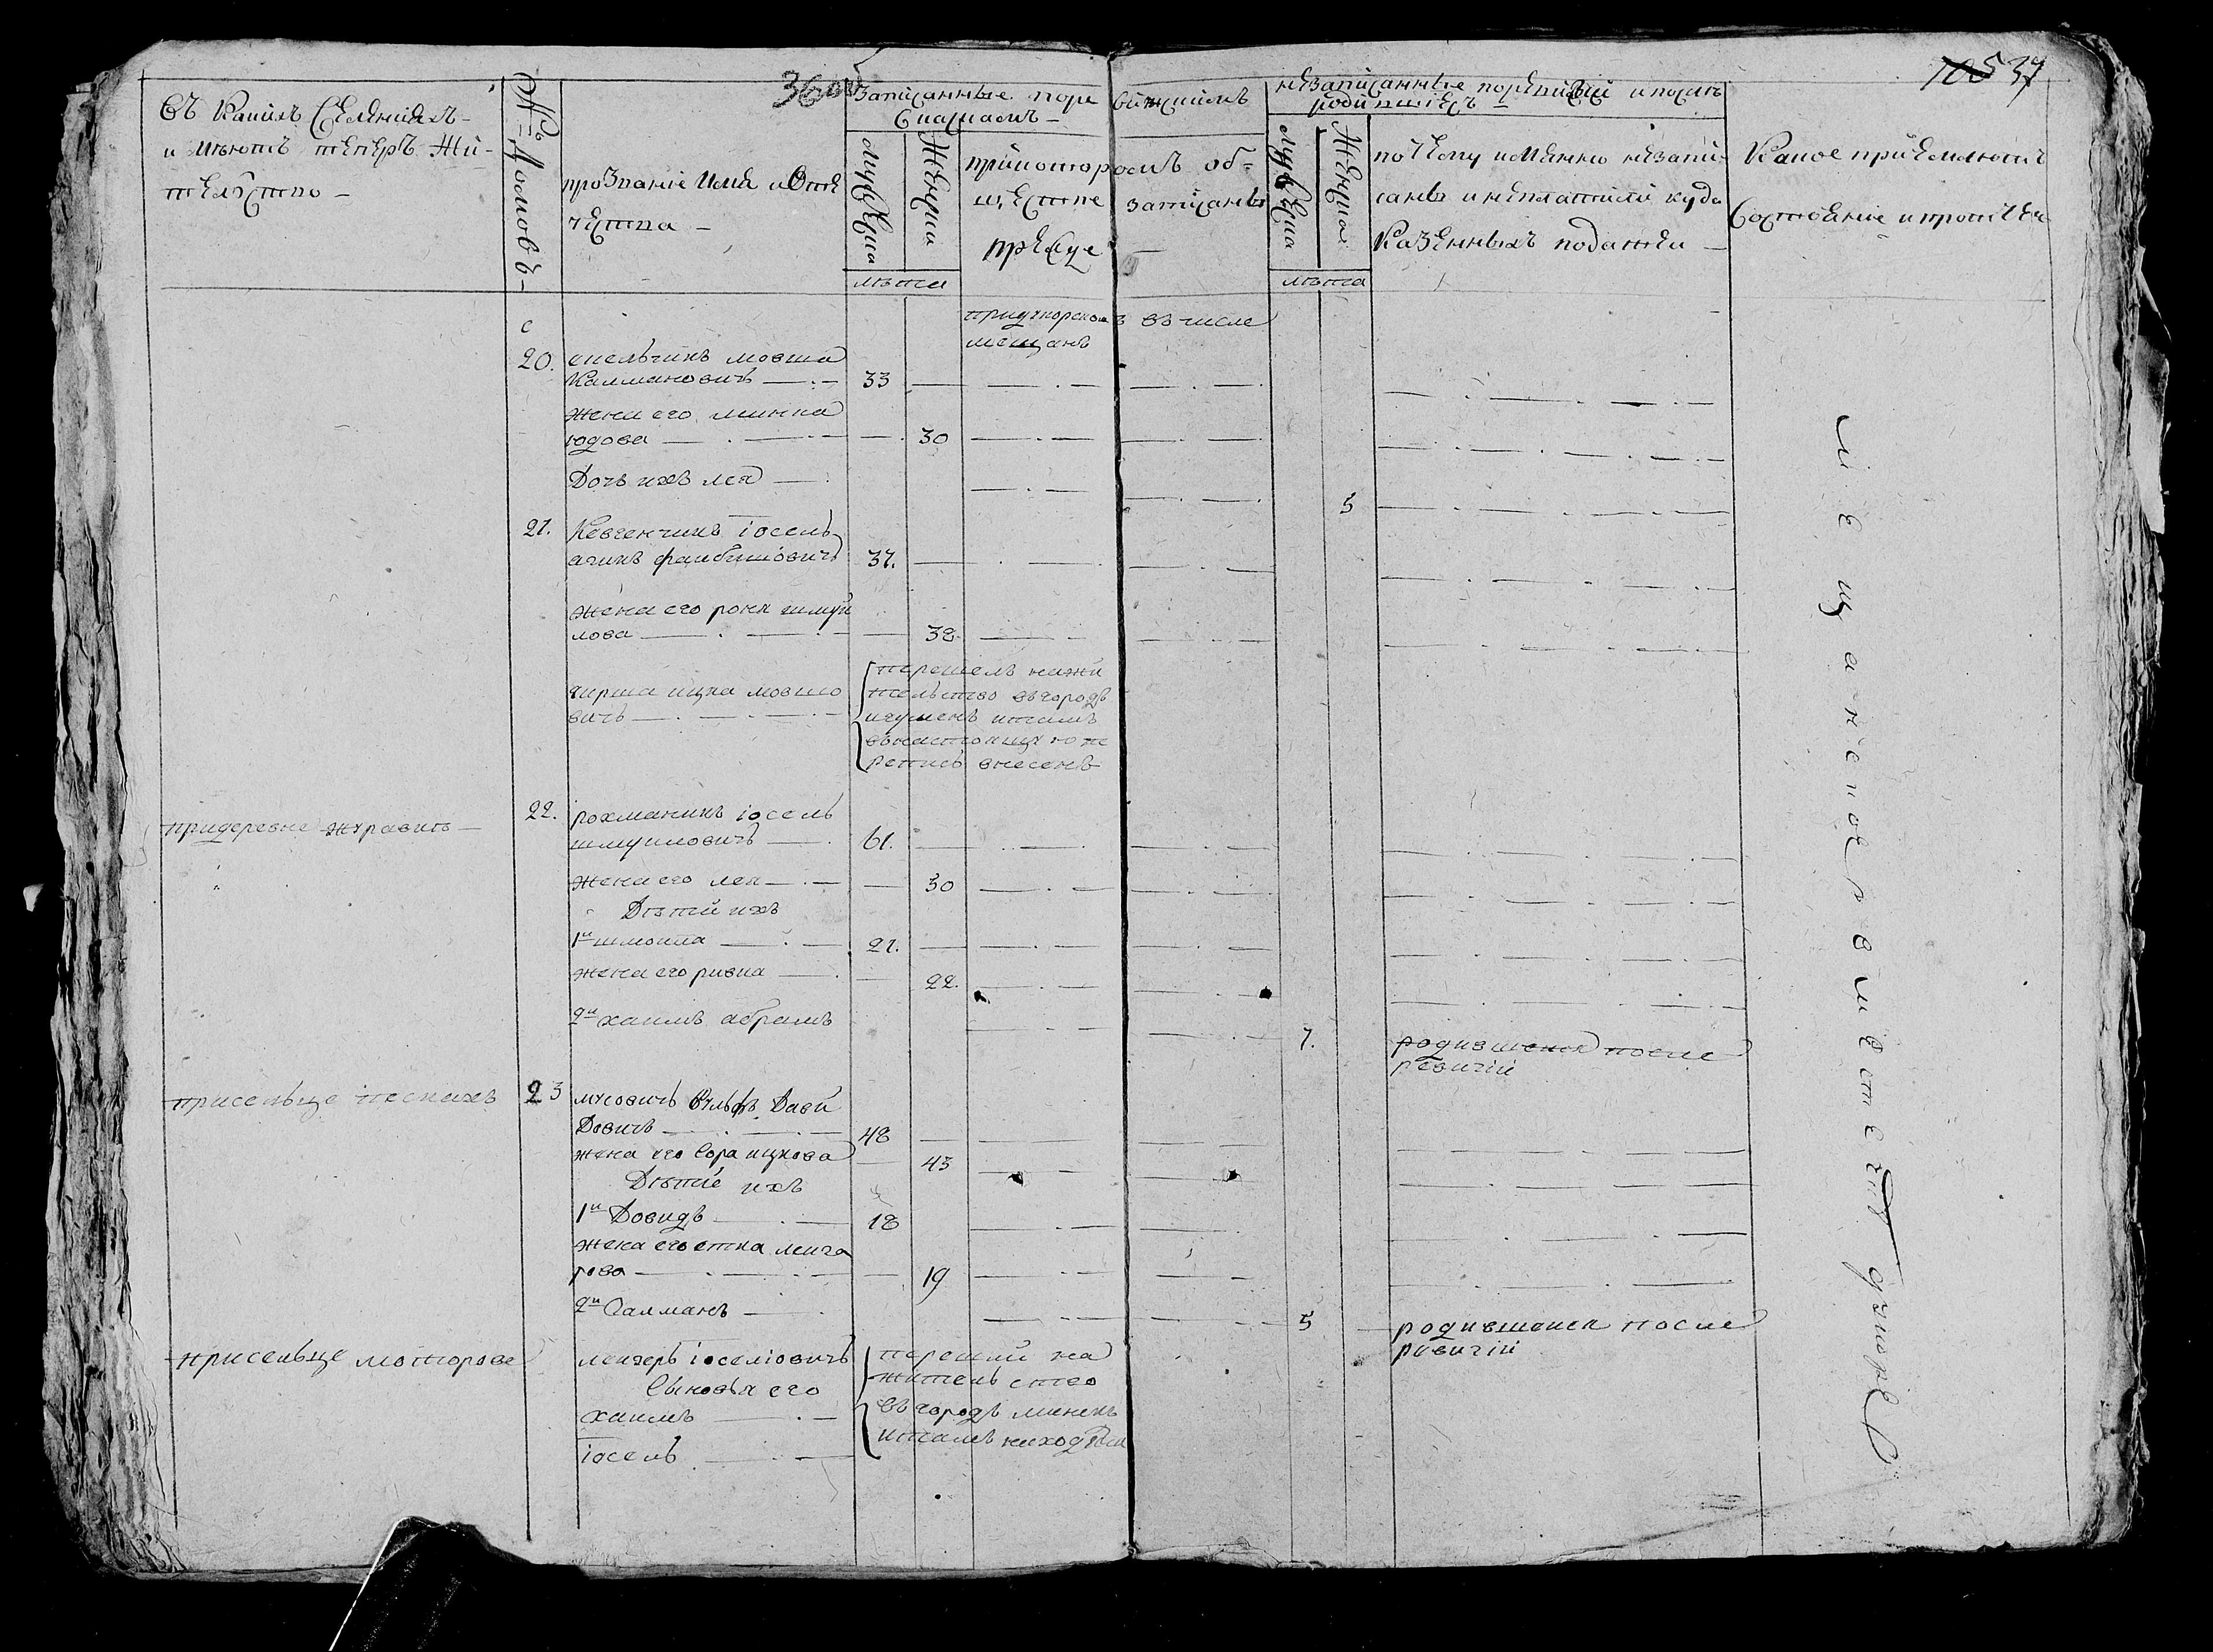 36
105 37
Въ какихъ селенiяхъ
и мѣютъ теперъ жи-
телство
№ Домовъ
прозванiе имя и отче
чества
записанные поре визскимъ
Сказкамъ
мужеска
Женска
лѣта
прикоторомъ об-
щестне записанъ
прежде
незаписанные поревизiи и послѣ
родившiесъ
мужеска
Женска
лѣта
почему имянно незапи
саны и неплатили куда
казенныхъ податей
Какое прiемлютъ
Состоянiе и протчея
въ числе
мещанъ
20. епельчикъ мовша
Калмановичъ 33
жена его минка
юдова 30
Дочь ихъ лея 5
21. Кевченчикъ iосель
фаибишовичъ 37.
жена его рока шмуй
лова 38.
гирша ицка мовшо
вичъ
перешелъ нажи
тельство въ городъ
игуменъ итамъ
внастоящую пе
репись внесенъ
придеревне журавить
22. рохманикъ iосель
шмуиловичъ 61.
жена его лея 30
Дѣтiи ихъ
1и шмоила 21.
жена его ривка 22.
2и хаимъ абрамъ 7. родившеися после
ревизiи
присельце пескахъ
23 мусовичъ вульфъ Дави
Довичъ 48
жена его Сора ицкова 43
Дѣтiе ихъ
1и Довидъ 18
жена его етка леизе
рова 19
2и Салманъ 5 родившеися после
ревизiи
присельце моторове
леизеръ iоселiовичъ
Сыновья его
хаимъ
iосель
перешли на
жительство
въ городъ минскъ
итамъ находятся
мещанское вместечке